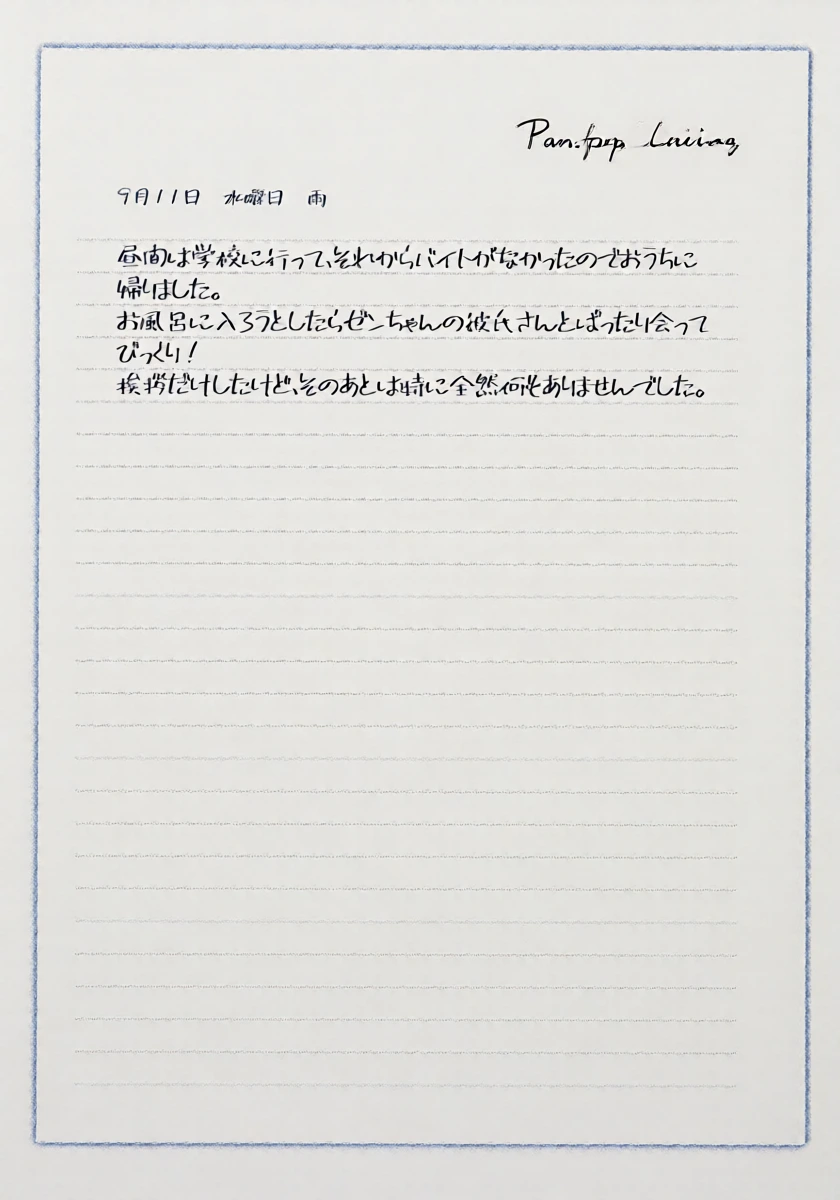 9月11日 水曜日 雨
昼間は学校に行って、それからバイトがなかったのでおうちに
帰りました。
お風呂に入ろうとしたらゼンちゃんの彼氏さんとばったり会って
びっくり!
挨拶だけしたけど、そのあとは特に全然何もありませんでした。